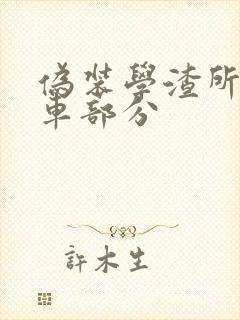 偽裝學渣所
車部分
許木生